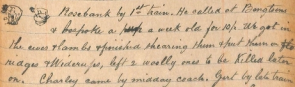 Rosebank by 1st train. He called at
& bespoke a a week old for 10/. We got in
the ewes & lambs & finished shearing them & put them on the
ridges & Widerups, left 2 woolly ones to be killed later
on. Charley came by midday coach. Gert by late train